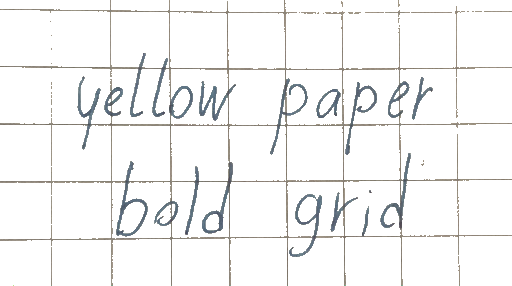 yellow paper
bold grid